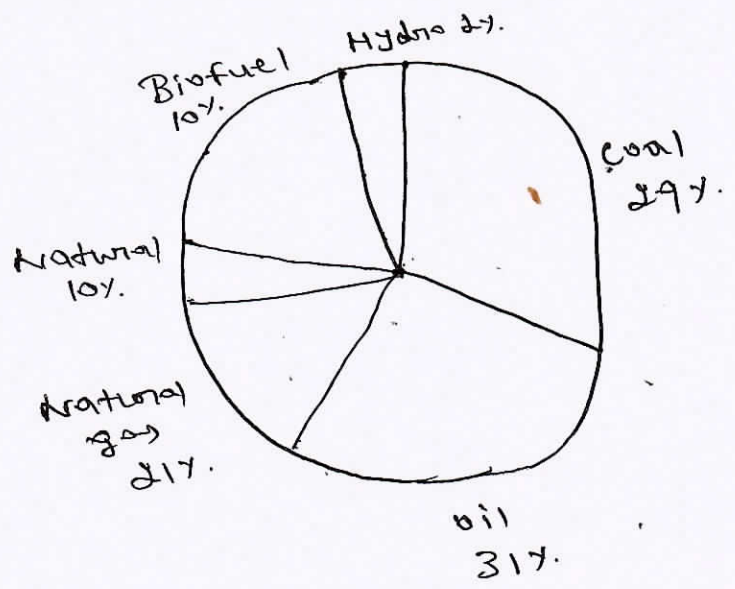 Hydro 2%.
Biofuel
10%.
Coal
29%.
Natural
10%.
Natural
gas
21%.
oil
31%.